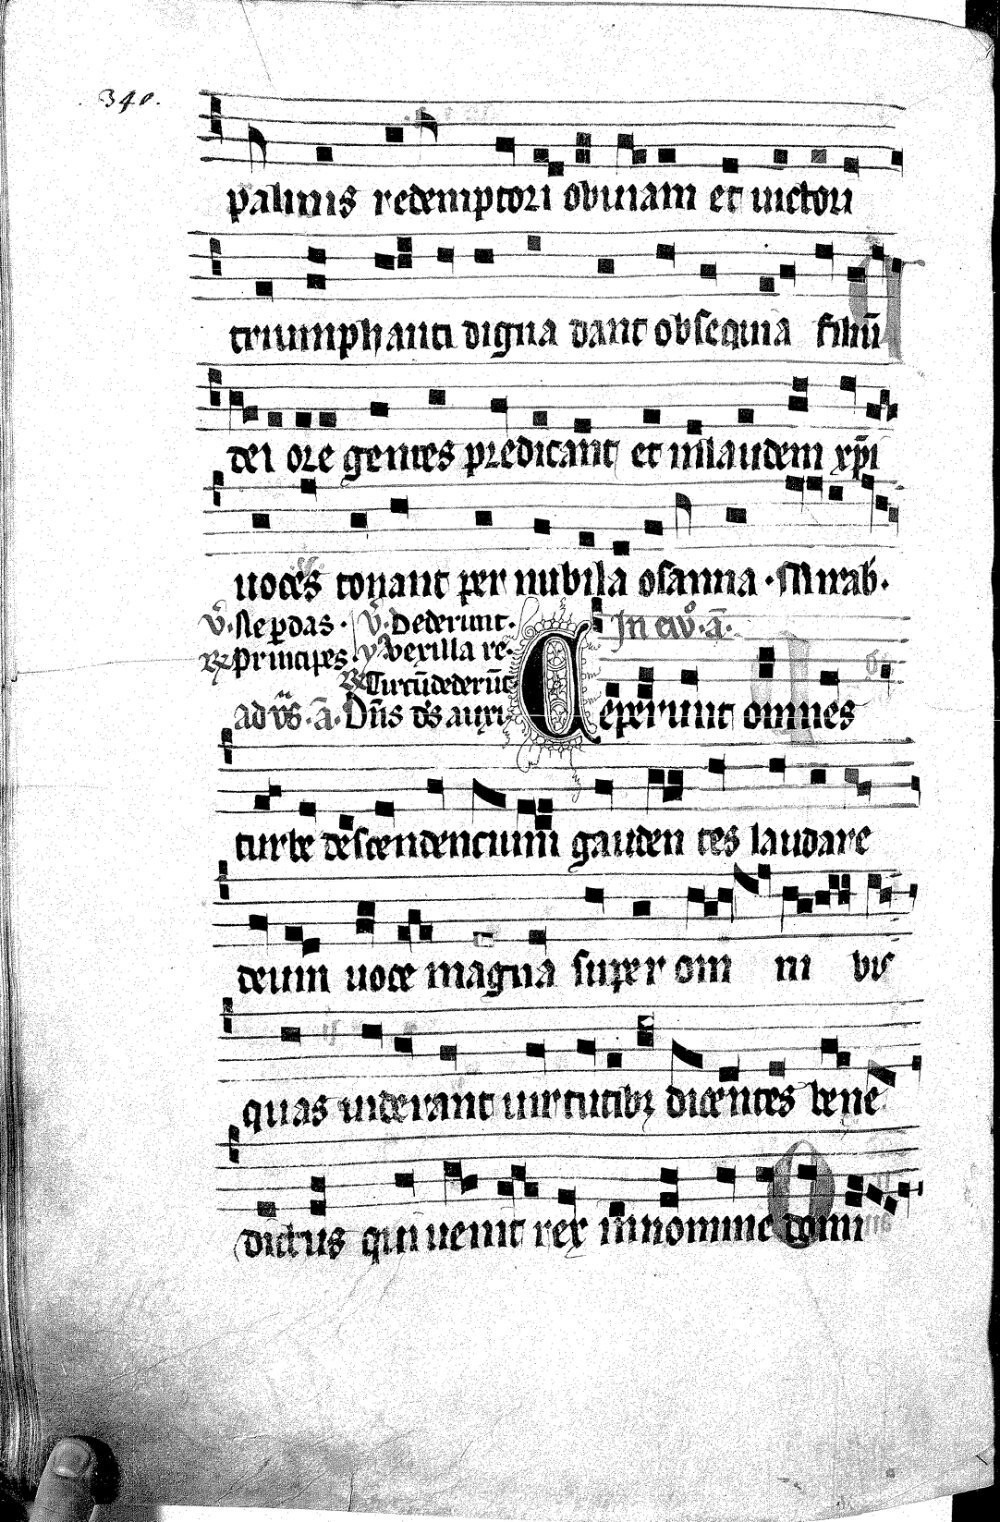 340.
palmis redemptori obuiam et uictori
triumphanti digna dant obsequia filiū
dei ore gentes predicant et inlaudem xp̄i
uoces tonant per nubila osanna · Mirab̄.
V̄. Ne ꝑdas · V̄. Dederunt. In euō. ā.
℟ Principes. ẏ Vexilla re.
℟ Circū dederūt
ad vs̄. ā. Dn̄s ds̄ auxi. Ceperunt omnes
turbe descendencium gauden tes laudare
deum uoce magna super om ni bus
quas uiderant uirtutibꝫ dicentes bene
dictus qui uenit rex in nomine domi